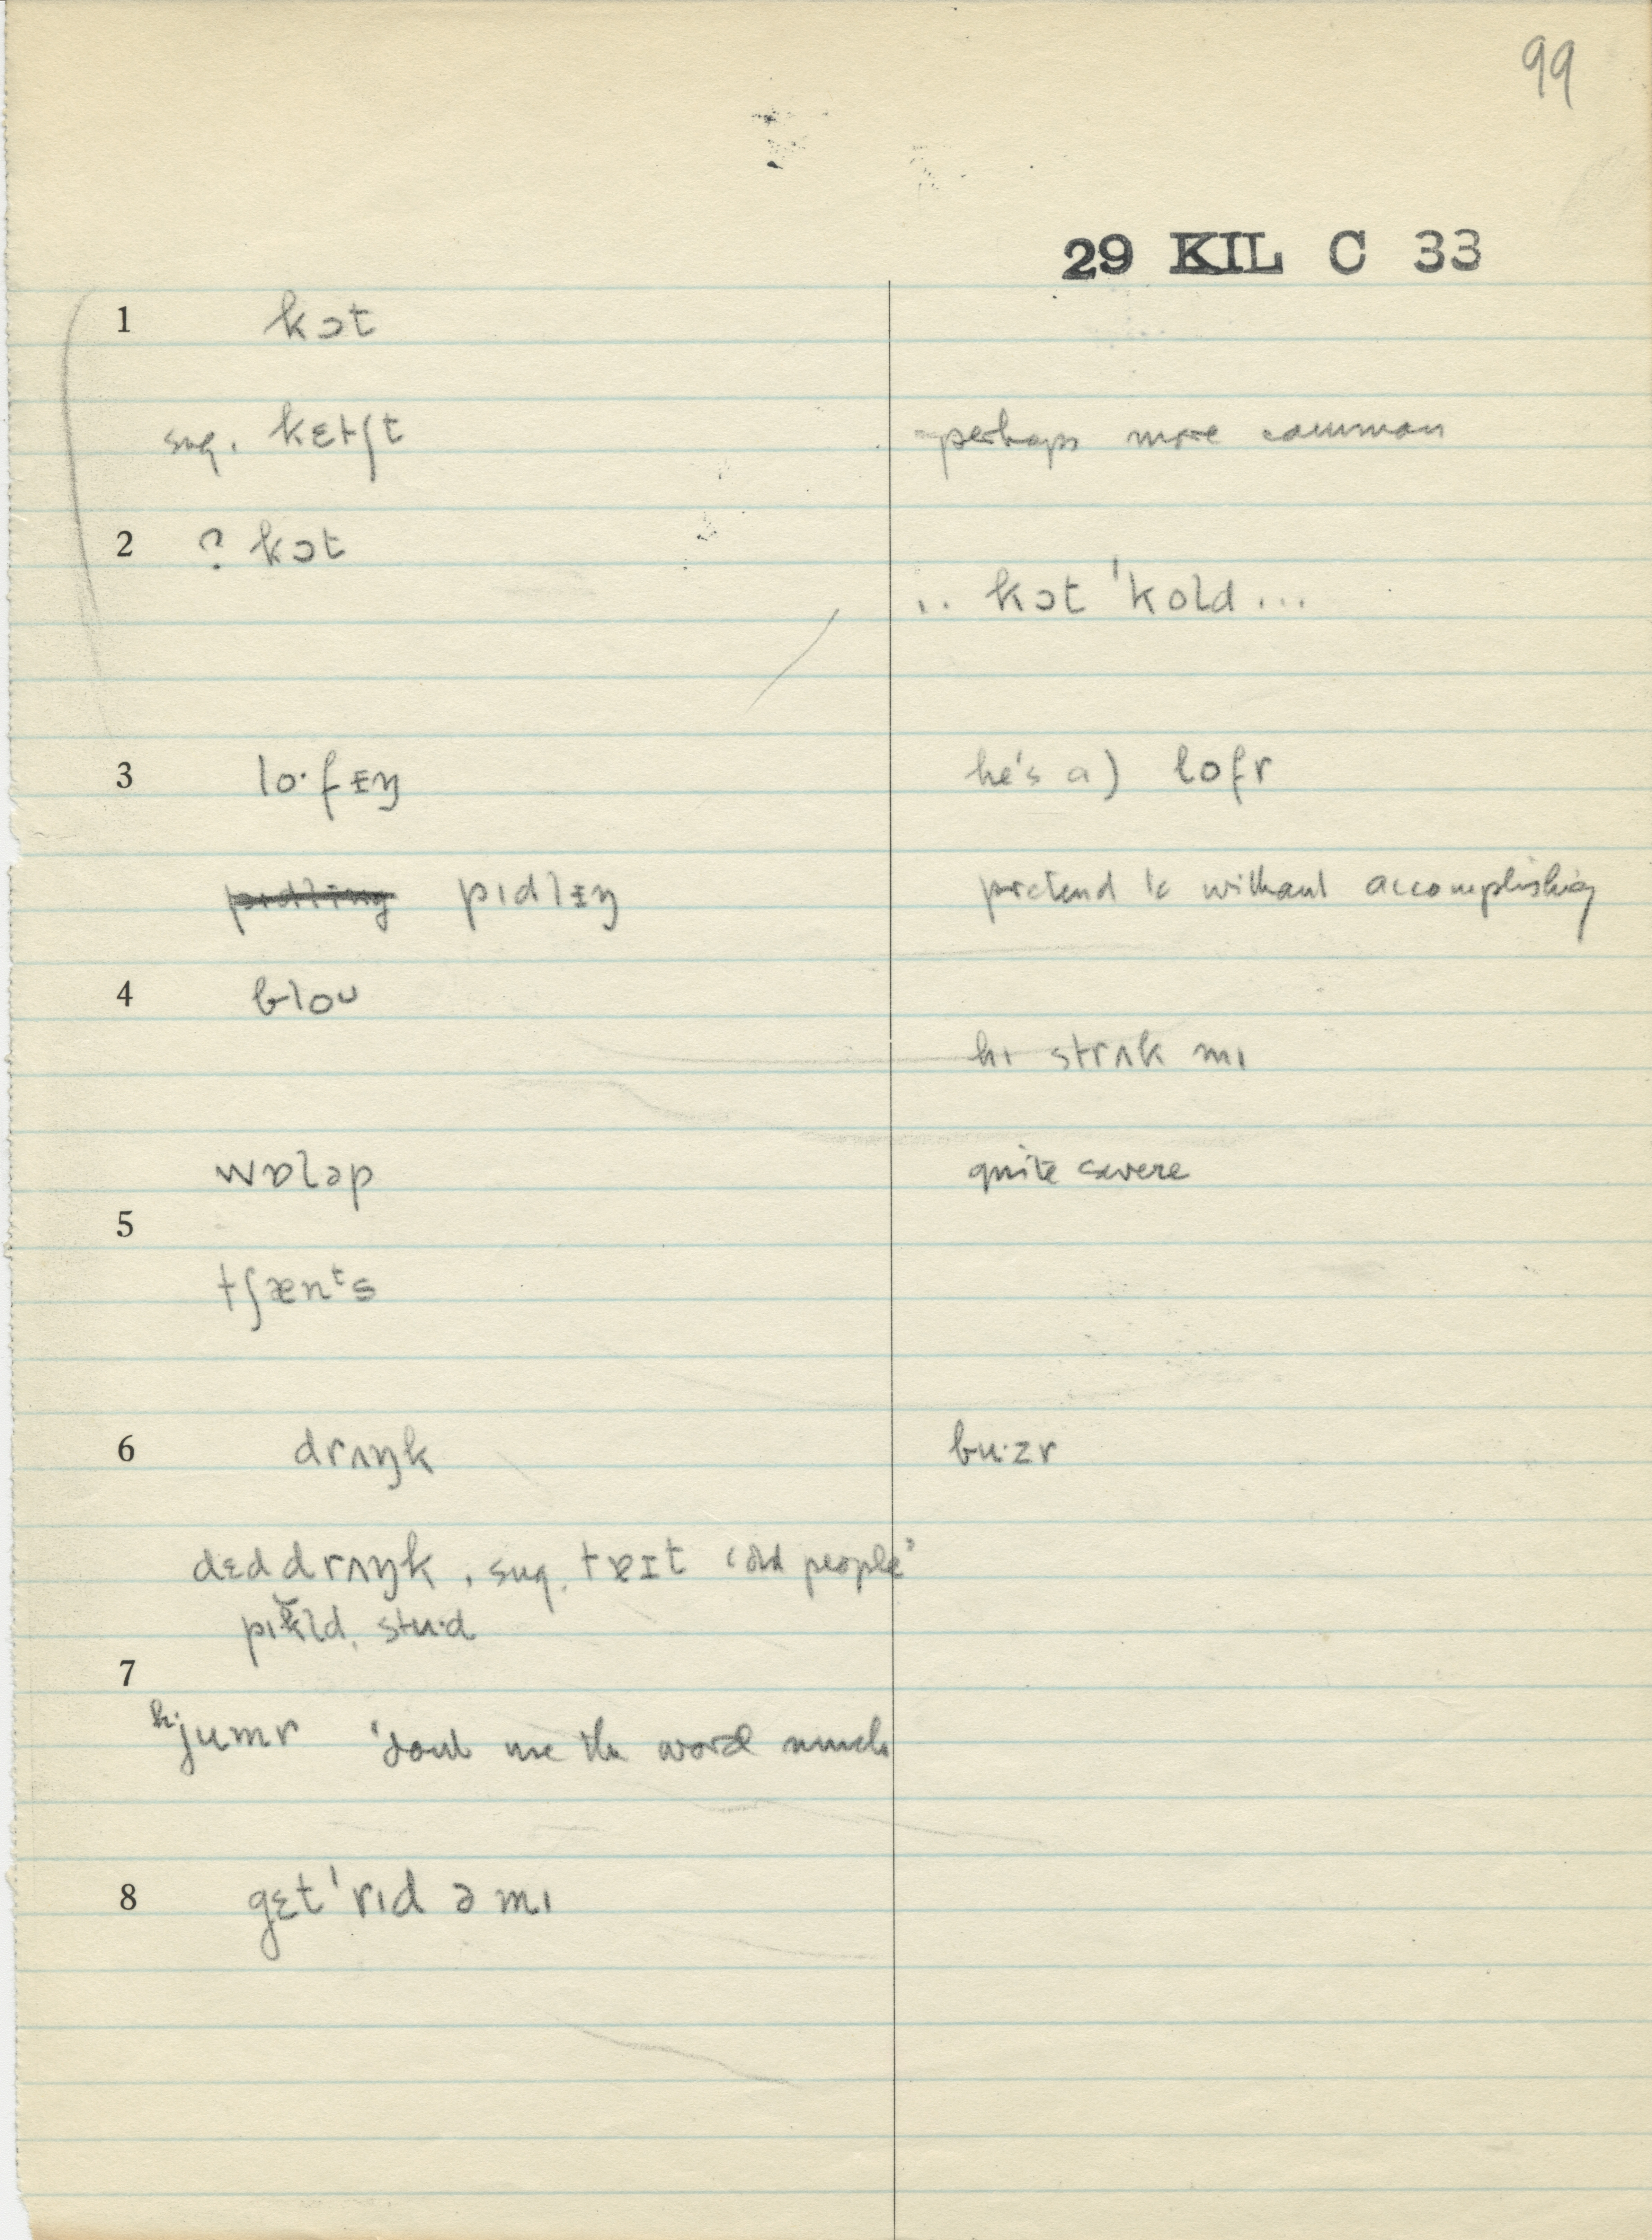 99
29 KIL C 33
1 kɔt
sug. kɛtʃt perhaps more common
2 ? kɔt
.. kɔt 'kold ...
3 lo·fɪŋ he's a) lofr
pɪdlɪŋ pretend to without accomplishing
4 bloʊ
hɪ strʌk mɪ
wɒləp quite severe
5
tʃænᵗs
6 drʌŋk bu·zr
dɛd drʌŋk, sug. tɐɪt 'old people'
pɪkld, stu·d
7
hjumr 'dont use the word much
8 gɛt 'rɪd ə mɪ